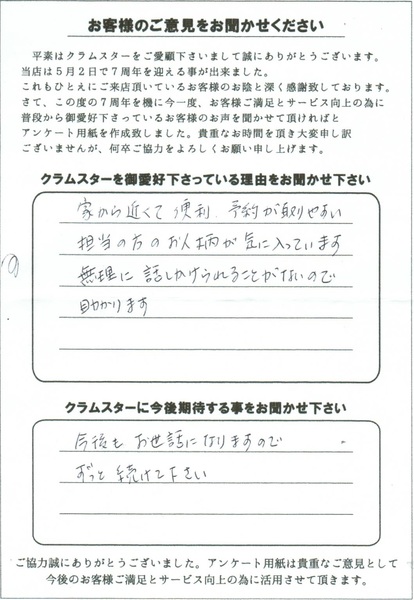 お客様のご意見をお聞かせください
平素はクラムスターをご愛顧下さいまして誠にありがとうございます。
当店は5月2日で7周年を迎える事が出来ました。
これもひとえにご来店頂いているお客様のお陰と深く感謝致しております。
さて、この度の7周年を機に今一度、お客様ご満足とサービス向上の為に
普段から御愛好下さっているお客様のお声を聞かせて頂ければと
アンケート用紙を作成致しました。貴重なお時間を頂き大変申し訳
ございませんが、何卒ご協力をよろしくお願い申し上げます。
クラムスターを御愛好下さっている理由をお聞かせ下さい
家から近くて便利 予約が取りやすい
担当の方のお人柄が気に入っています
無理に話しかけられることがないので
助かります
クラムスターに今後期待する事をお聞かせ下さい
今後もお世話になりますので
ずっと続けて下さい
ご協力誠にありがとうございました。アンケート用紙は貴重なご意見として
今後のお客様ご満足とサービス向上の為に活用させて頂きます。